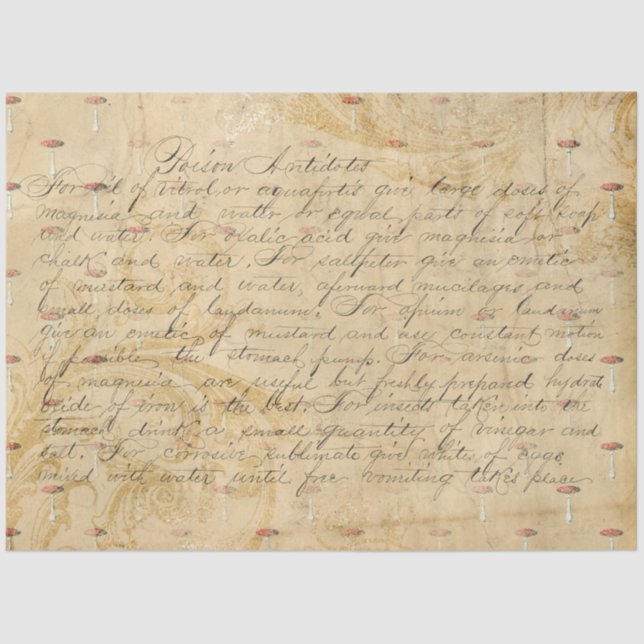 Poison Antidotes
For oil of vitrol or aquafirtis give large doses of
magnesia and water or equal parts of soft soap
and water. For oxalic acid give magnesia or
chalk and water. For saltpeter give an emetic
of mustard and water, aferward mucilages and
small doses of laudanum. For opium or laudanum
give an emetic of mustard and use constant motion
if possible the stomach pump. For arsenic doses
of magnesia are useful but freshly prepared hydrate
oxide of iron is the best. For insects taken into the
stomach drink a small quantity of vinegar and
salt. For corrosive sublimate give whites of eggs
mixed with water until free vomiting takes place